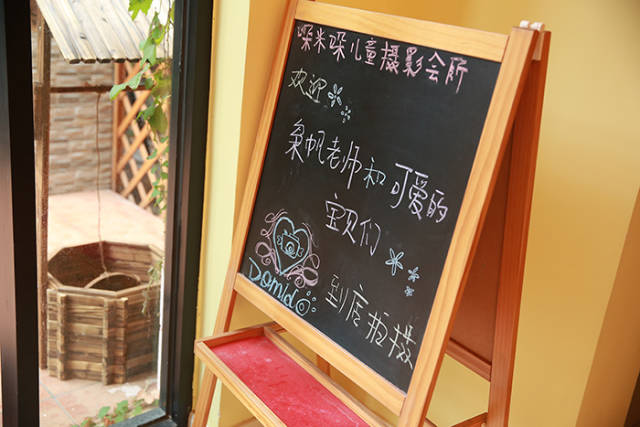 哚米哚儿童摄影会所
欢迎
枭帆老师和可爱的
宝贝们
Domido
到店拍摄